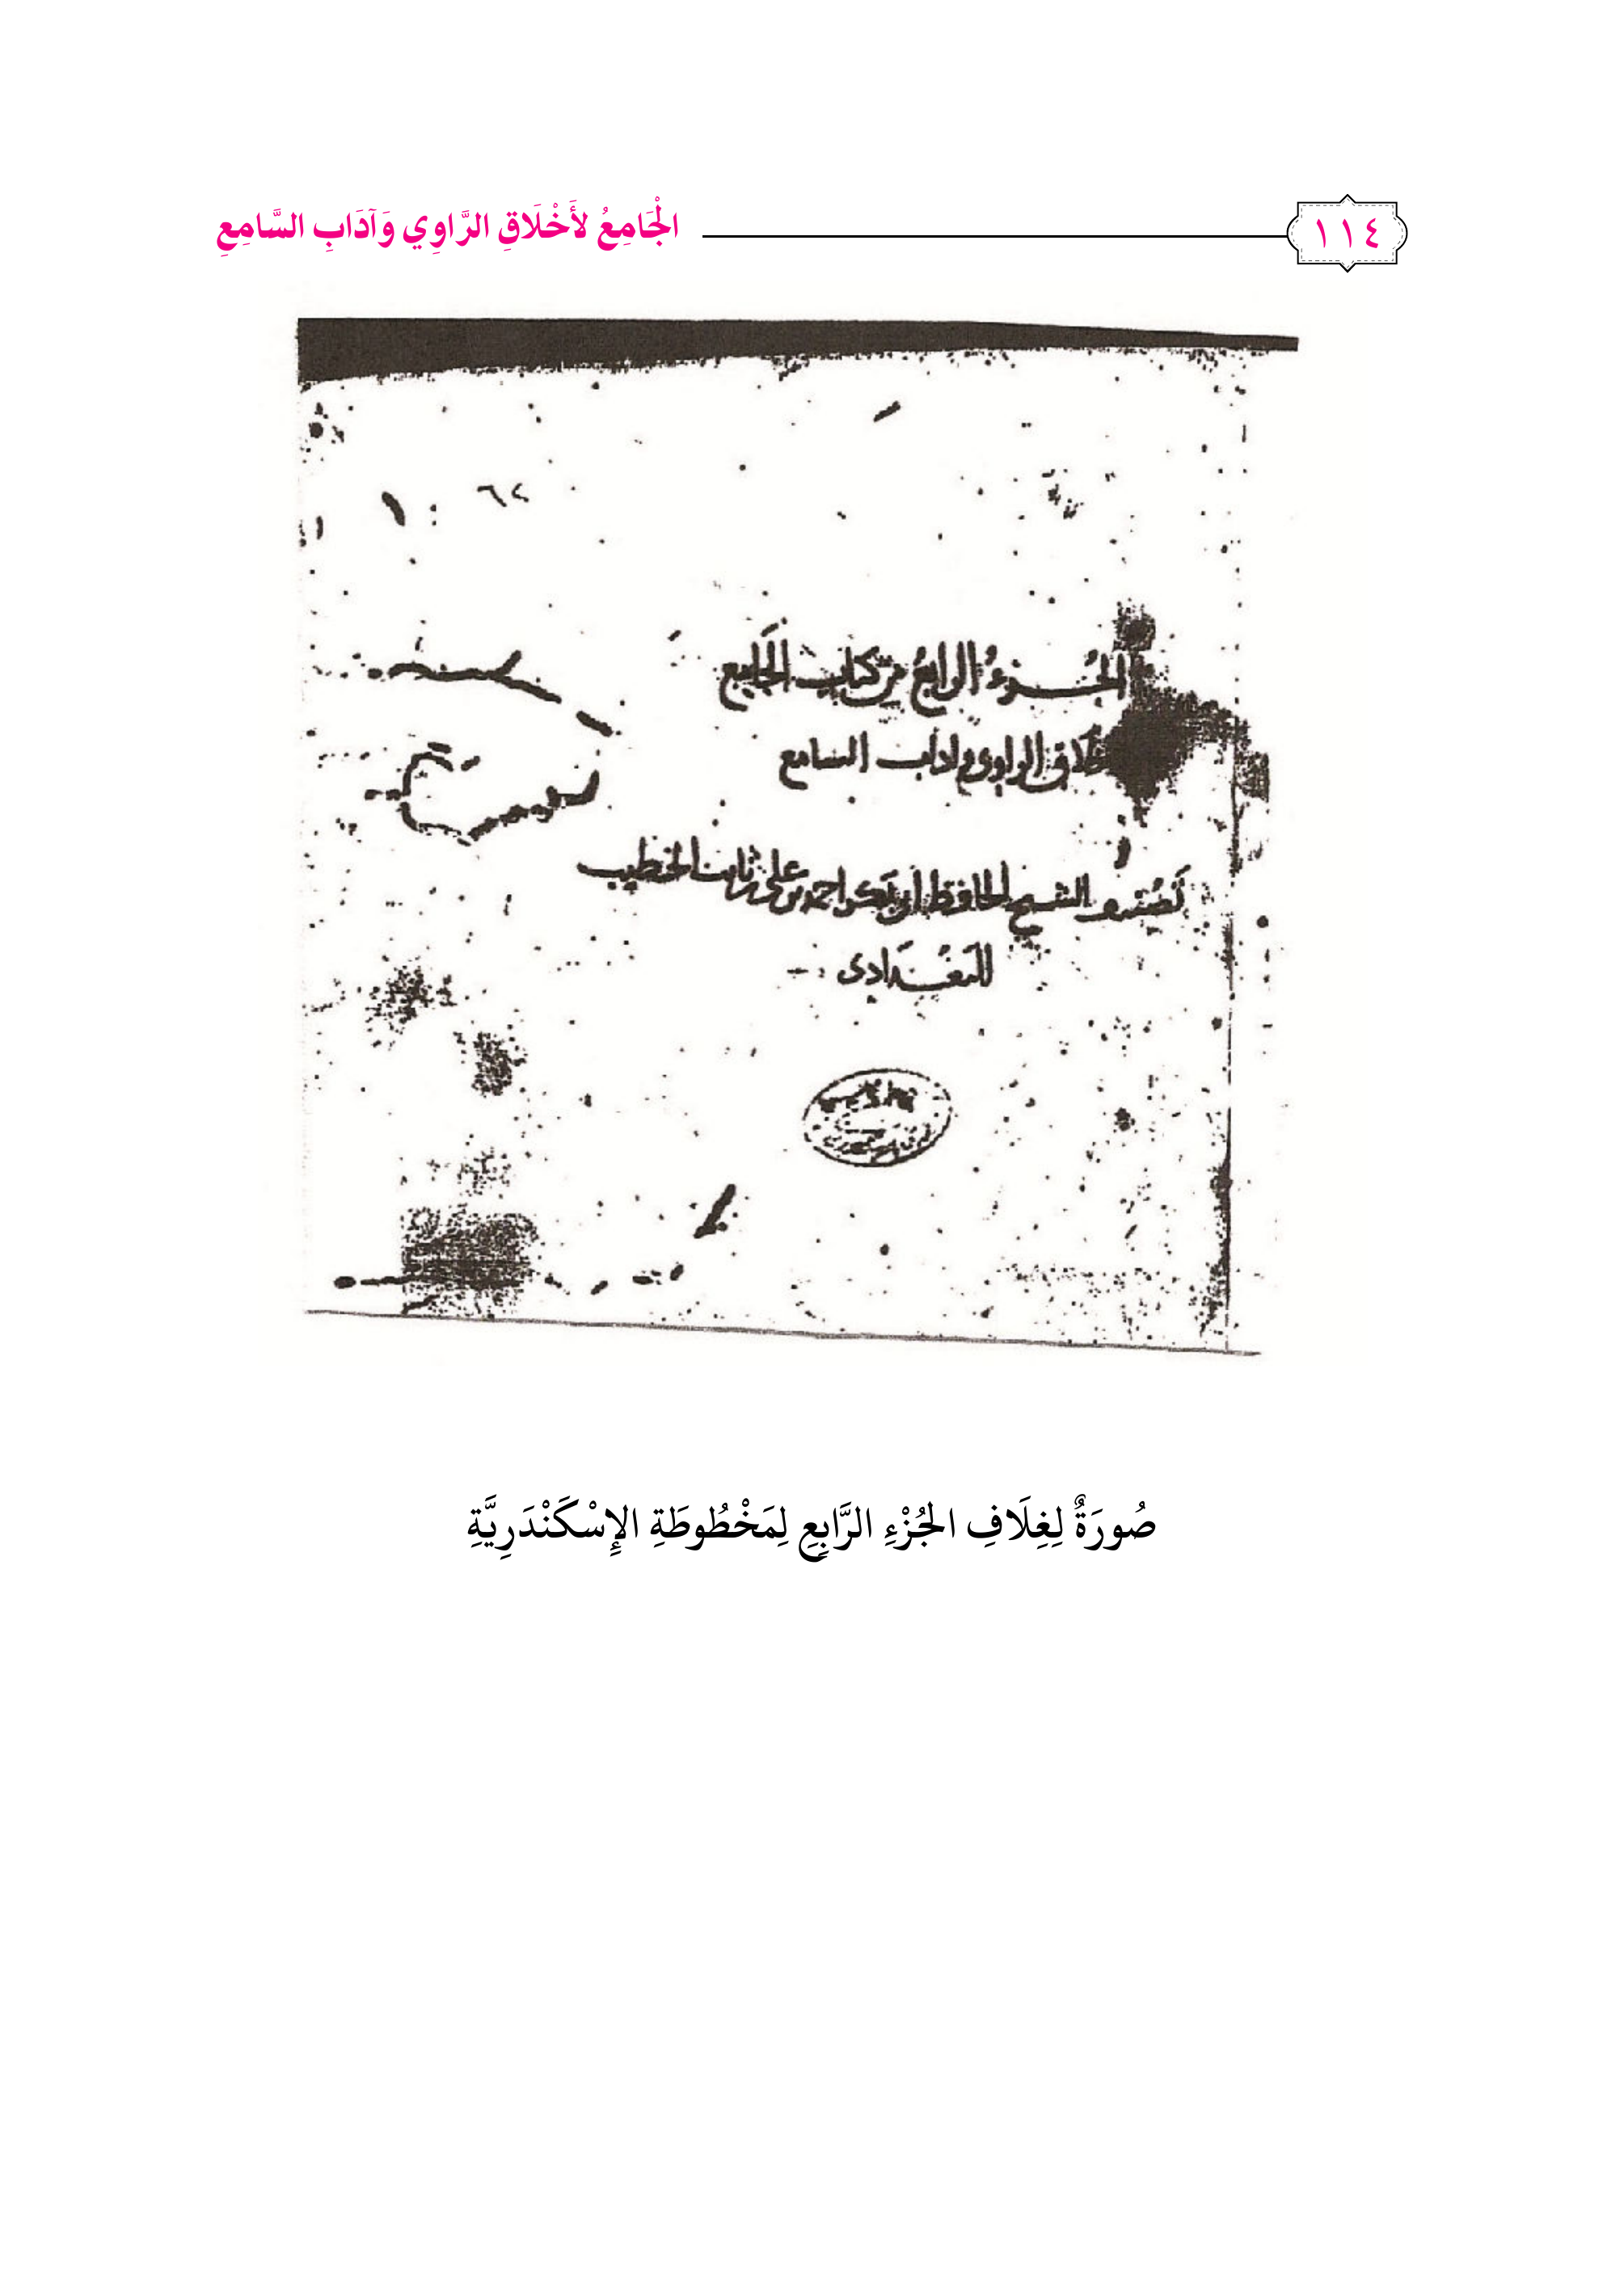 ١١٤
الْجَامِعُ لأَخْلَاقِ الرَّاوِي وَآدَابِ السَّامِعِ
٦٤
الجُزءُ الرابعُ من كتاب الجَامِع
خلاق الراوى واداب السامع
تصنيف الشيخ الحافظ ابى بكر احمد بن على بن ثابت الخطيب
البَغْدَادى
صُورَةٌ لِغِلَافِ الجُزْءِ الرَّابِعِ لِمَخْطُوطَةِ الإِسْكَنْدَرِيَّةِ